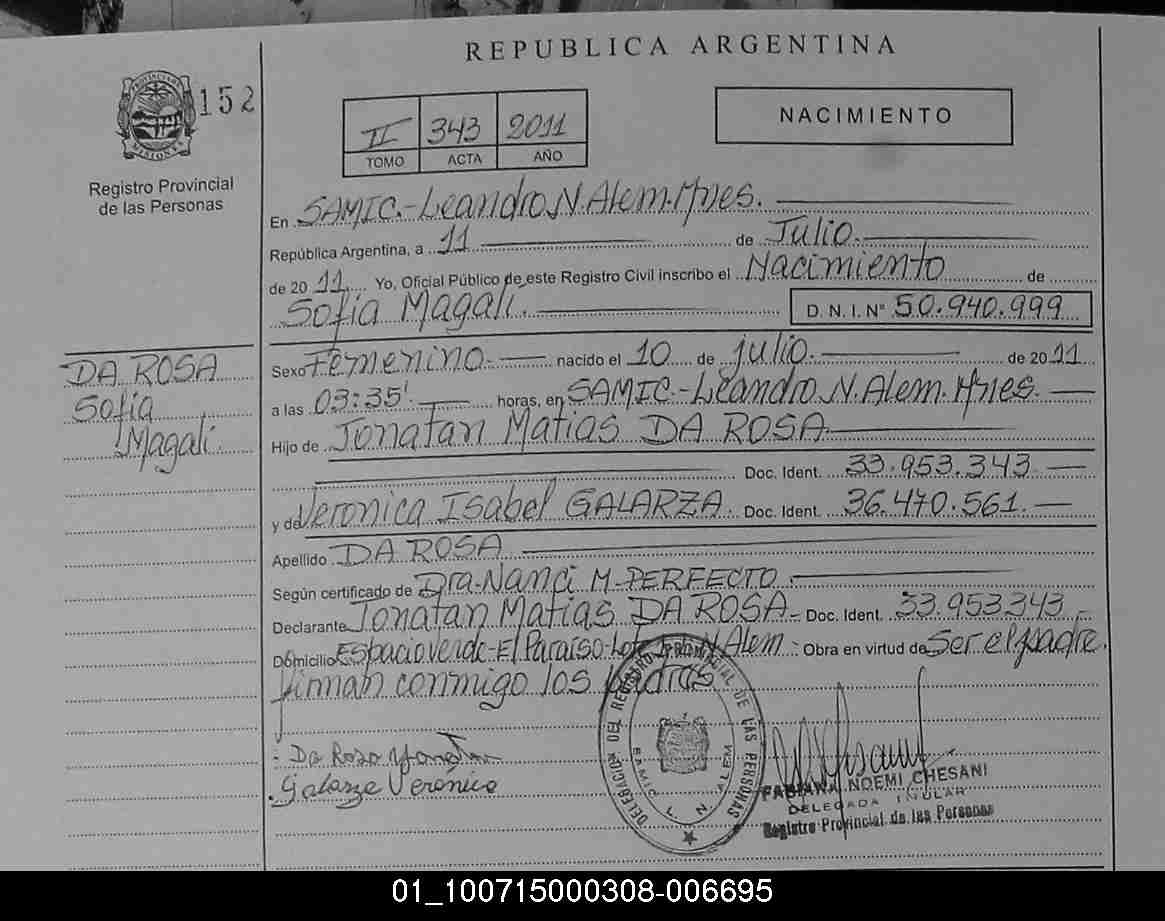 REPUBLICA ARGENTINA
PROVINCIA DE MISIONES
152
Registro Provincial
de las Personas
II 343 2011
TOMO ACTA AÑO
NACIMIENTO
En SAMIC.-Leandro.N.Alem.Mnes.
República Argentina, a 11 de Julio.
de 2011 Yo, Oficial Público de este Registro Civil inscribo el Nacimiento de
Sofía Magalí. D. N. I. N° 50.940.999
DA ROSA
Sofía
Magalí.
Sexo Femenino- nacido el 10 de julio. de 2011
a las 03:35' horas, en SAMIC.-Leandro.N.Alem.Mnes.
Hijo de Jonatan Matias DA ROSA
Doc. Ident. 33.953.343
y de Veronica Isabel GALARZA. Doc. Ident. 36.470.561.
Apellido DA ROSA
Según certificado de Dra.Nanci M.PERFECTO.
Declarante Jonatan Matias DA ROSA- Doc. Ident. 33.953.343
Domicilio Espacio verde-El Paraiso-Lote N Alem: Obra en virtud de Ser el padre.
firman conmigo los padres.
Da Rosa Yonatan
Galarza Verónica
DELEGACION DEL REGISTRO PROVINCIAL DE LAS PERSONAS
SAMIC L. N. ALEM
FABIANA NOEMI CHESANI
DELEGADA TITULAR
Registro Provincial de las Personas
01_100715000308-006695